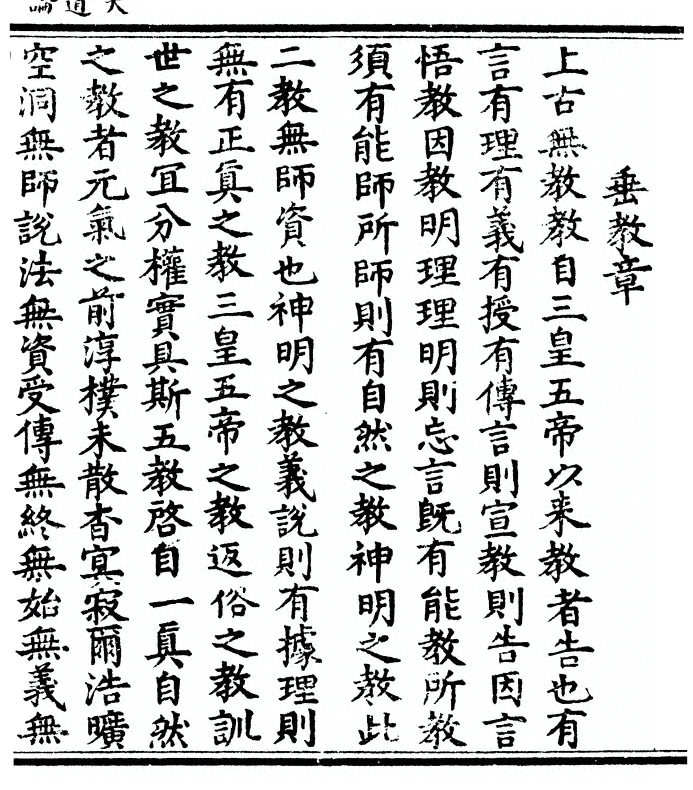 垂教章
上古無教教自三皇五帝以来教者告也有
言有理有義有授有傳言則宣教則告因言
悟教因教明理理明則忘言旣有能教所教
須有能師所師則有自然之教神明之教此
二教無師資也神明之教義說則有據理則
無有正真之教三皇五帝之教返俗之教訓
世之教冝分權實具斯五教啓自一真自然
之教者元氣之前淳樸未散杳㝠寂爾浩曠
空洞無師說法無資受傳無終無始無義無